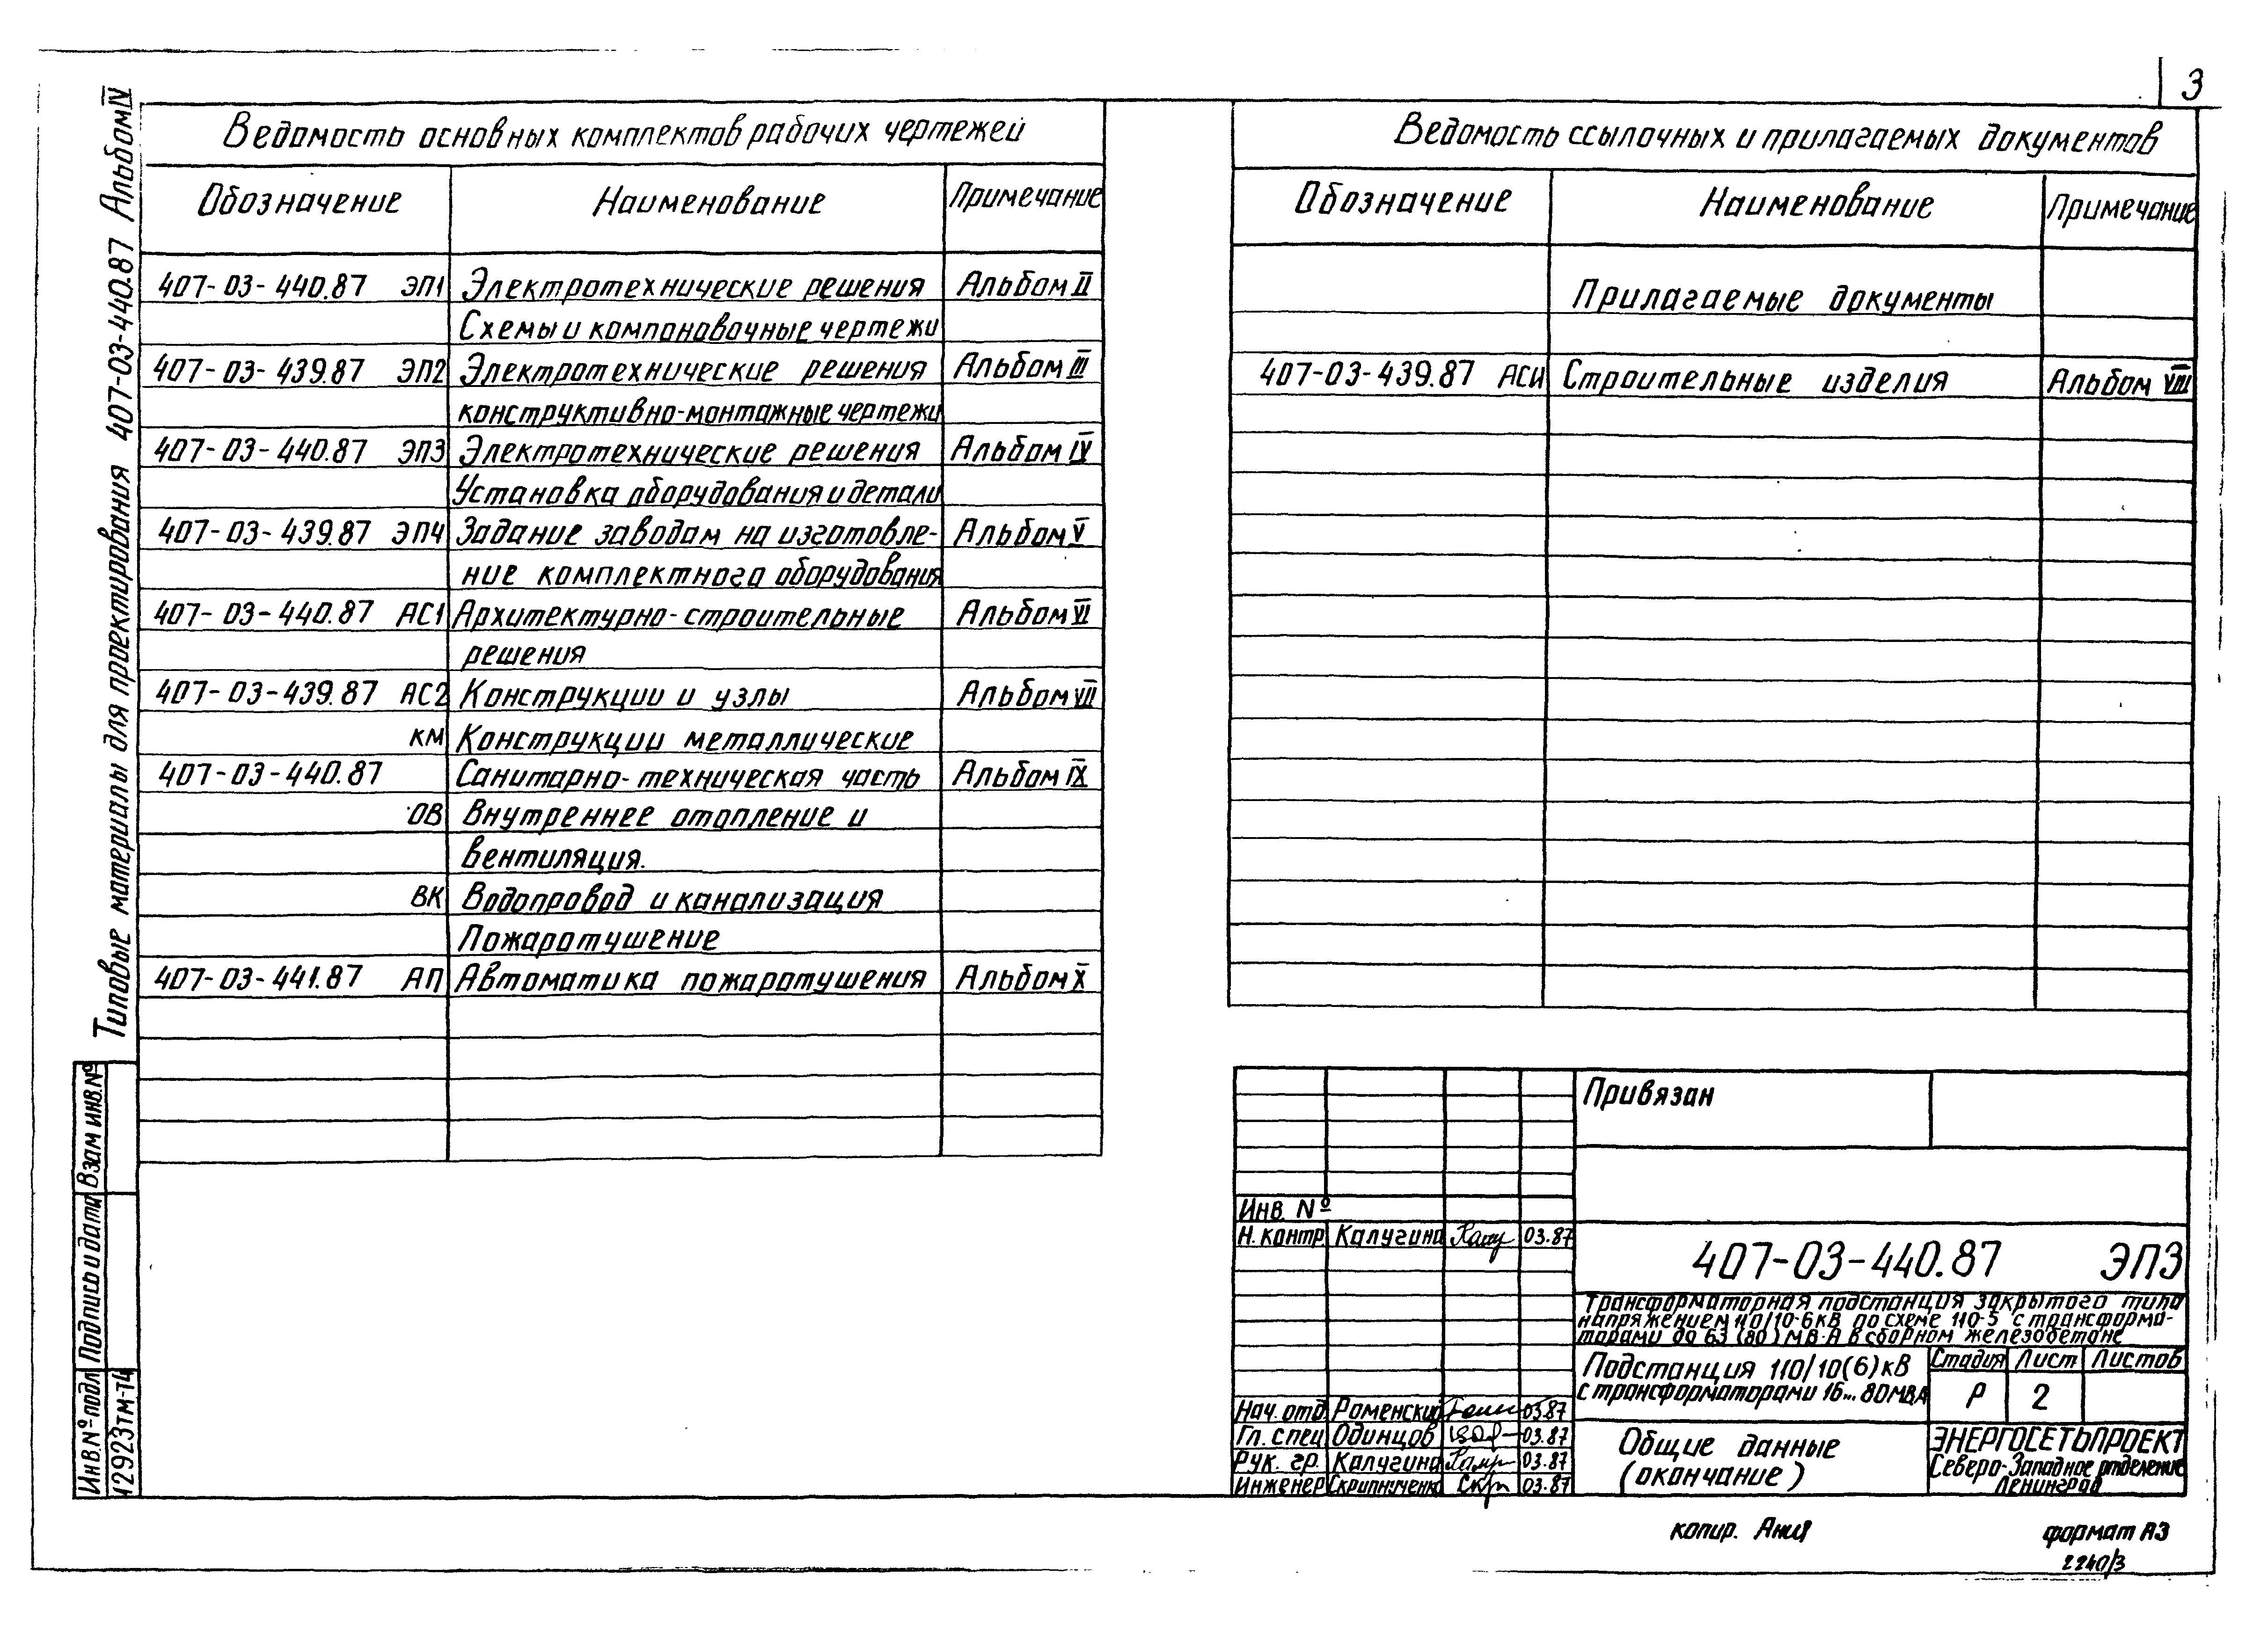 3
Типовые материалы для проектирования 407-03-440.87 Альбом IV
Ведомость основных комплектов рабочих чертежей
Обозначение Наименование Примечание
407-03-440.87 ЭП1 Электротехнические решения Альбом II
Схемы и компоновочные чертежи
407-03-439.87 ЭП2 Электротехнические решения Альбом III
конструктивно-монтажные чертежи
407-03-440.87 ЭП3 Электротехнические решения Альбом IV
Установка оборудования и детали
407-03-439.87 ЭП4 Задание заводам на изготовле- Альбом V
ние комплектного оборудования
407-03-440.87 АС1 Архитектурно-строительные Альбом VI
решения
407-03-439.87 АС2 Конструкции и узлы Альбом VII
КМ Конструкции металлические
407-03-440.87 Санитарно-техническая часть Альбом IX
ОВ Внутреннее отопление и
вентиляция.
ВК Водопровод и канализация
Пожаротушение
407-03-441.87 АП Автоматика пожаротушения Альбом X
Ведомость ссылочных и прилагаемых документов
Обозначение Наименование Примечание
Прилагаемые документы
407-03-439.87 АСИ Строительные изделия Альбом VIII
Взам инв.№
Подпись и дата
Инв.№ подл
12923тм-т4
Привязан
Инв. №
Н. контр Калугина 03.87
407-03-440.87 ЭП3
Трансформаторная подстанция закрытого типа
напряжением 110/10-6кВ по схеме 110-5 с трансформа-
торами до 63 (80) МВ·А в сборном железобетоне
Подстанция 110/10(6)кВ
с трансформаторами 16...80МВА
Стадия Лист Листов
Р 2
Нач. отд. Роменский 03.87
Гл. спец Одинцов 03.87
Рук. гр. Калугина 03.87
Инженер Скрипниченко 03.87
Общие данные
(окончание)
ЭНЕРГОСЕТЬПРОЕКТ
Северо-Западное отделение
Ленинград
копир. Ания
формат А3
2240/3